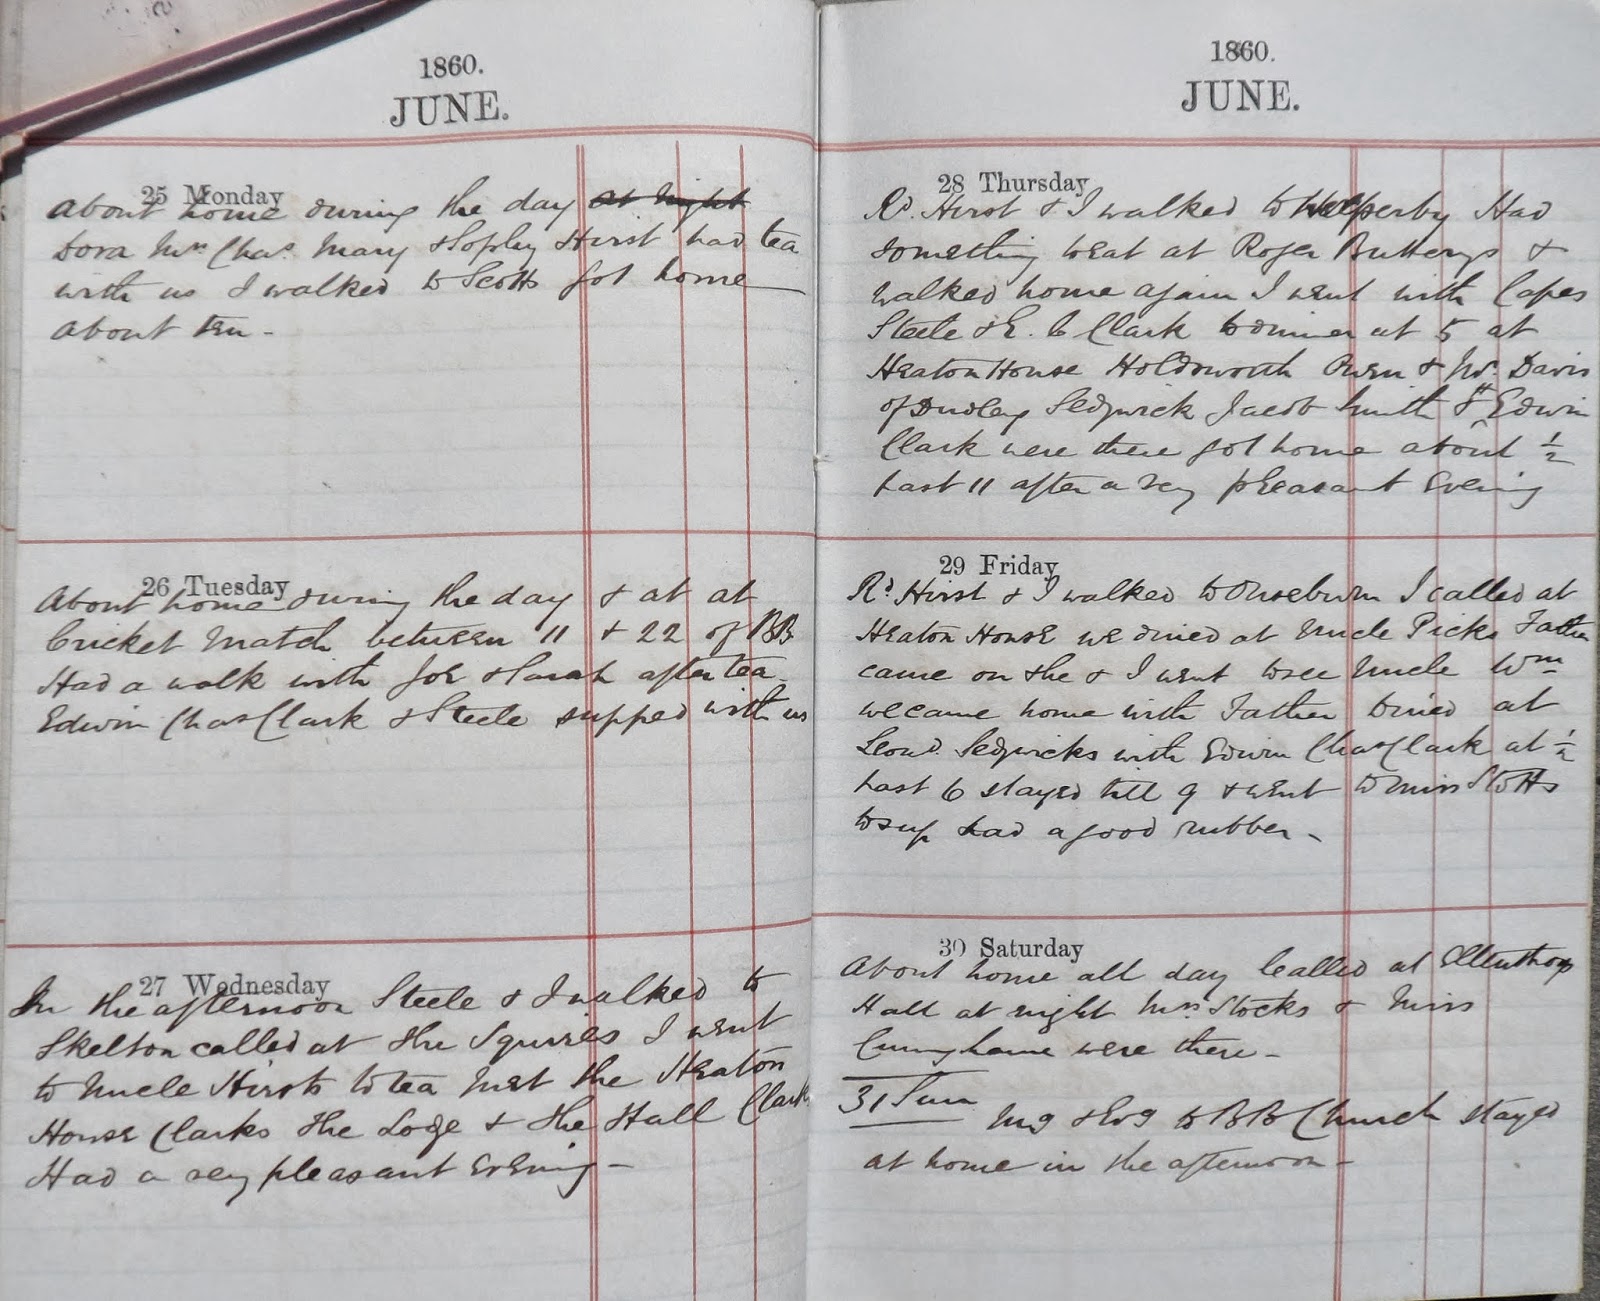 1860.
JUNE.
25 Monday
About home during the day at night
Dora Mrs Chas. Mary & Sophy Hirst had tea
with us I walked to Scotts got home
about ten -
26 Tuesday
About home during the day & at at
Cricket Match between 11 & 22 of BB
Had a walk with Joe & Sarah after tea
Edwin Chas Clark & Steele supped with us
27 Wednesday
In the afternoon Steele & I walked to
Skelton called at the Squires I went
to Uncle Hirsts to tea met the Heaton
House Clarks the Lodge & the Hall Clarks
Had a very pleasant evening -
1860.
JUNE.
28 Thursday
Rd. Hirst & I walked to Helperby Had
something to eat at Roger Butterys &
walked home again I went with Capes
Steele & E. C Clark to dinner at 5 at
Heaton House Holdsworth Owen & Mr. Davis
of Dudley Sedgwick Jacob Smith & Edwin
Clark were there got home about 1/2
past 11 after a very pleasant evening
29 Friday
Rd. Hirst & I walked to Ouseburn I called at
Heaton House we dined at Uncle Picks Father
came on & he & I went to see Uncle Wm
we came home with Father Dined at
Leond. Sedgwicks with Edwin Chas Clark at 1/2
past 6 stayed till 9 & went to Miss Stotts
to sup had a good rubber -
30 Saturday
About home all day Called at Ellenthorp
Hall at night Mrs Stocks & Miss
Cunnghame were there -
31 Sun
Mg & Evg to BB Church stayed
at home in the afternoon -